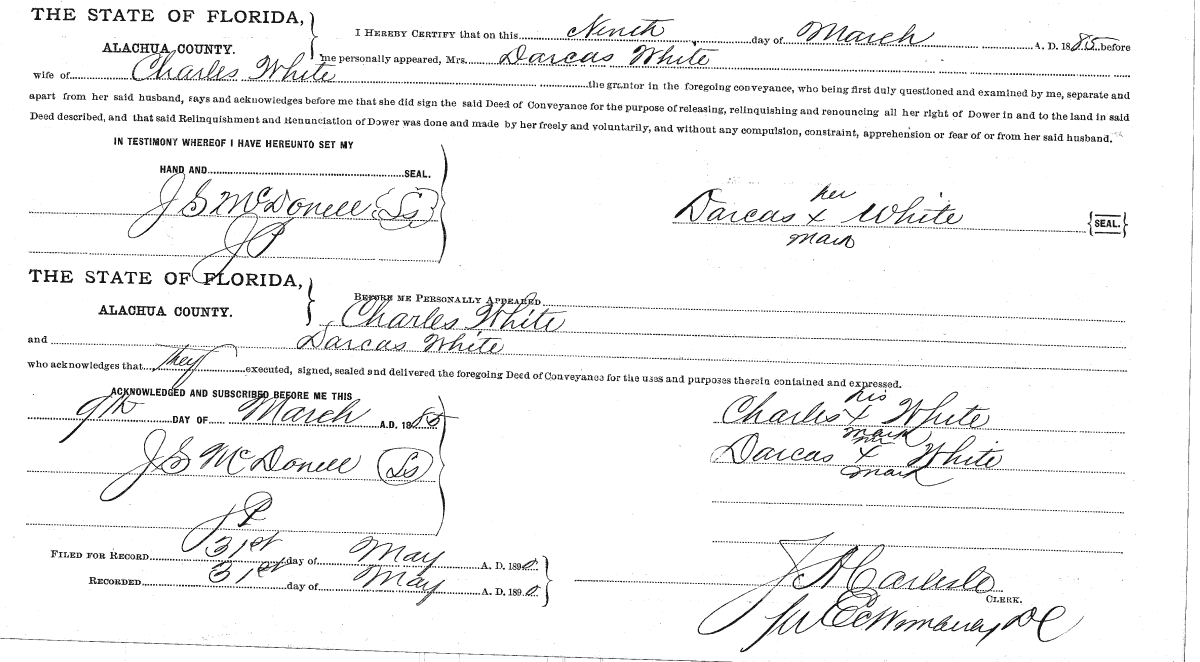 THE STATE OF FLORIDA,
ALACHUA COUNTY.
I HEREBY CERTIFY that on this Ninth day of March A. D. 1885 before
me personally appeared, Mrs. Darcas White
wife of Charles White the grantor in the foregoing conveyance, who being first duly questioned and examined by me, separate and
apart from her said husband, says and acknowledges before me that she did sign the said Deed of Conveyance for the purpose of releasing, relinquishing and renouncing all her right of Dower in and to the land in said
Deed described, and that said Relinquishment and Renunciation of Dower was done and made by her freely and voluntarily, and without any compulsion, constraint, apprehension or fear of or from her said husband.
IN TESTIMONY WHEREOF I HAVE HEREUNTO SET MY
HAND AND SEAL.
J S McDonell Ls
JP
her
Darcas x White {SEAL.}
mark
THE STATE OF FLORIDA,
ALACHUA COUNTY.
BEFORE ME PERSONALLY APPEARED
Charles White
and Darcas White
who acknowledges that they executed, signed, sealed and delivered the foregoing Deed of Conveyance for the uses and purposes therein contained and expressed.
ACKNOWLEDGED AND SUBSCRIBED BEFORE ME THIS
9th DAY OF March A.D. 1885
J S McDonell Ls
JP
his
Charles x White
mark
her
Darcas x White
mark
FILED FOR RECORD 31st day of May A. D. 1890.
RECORDED 31st day of May A. D. 1890.
J A Carlisle
CLERK.
per DC